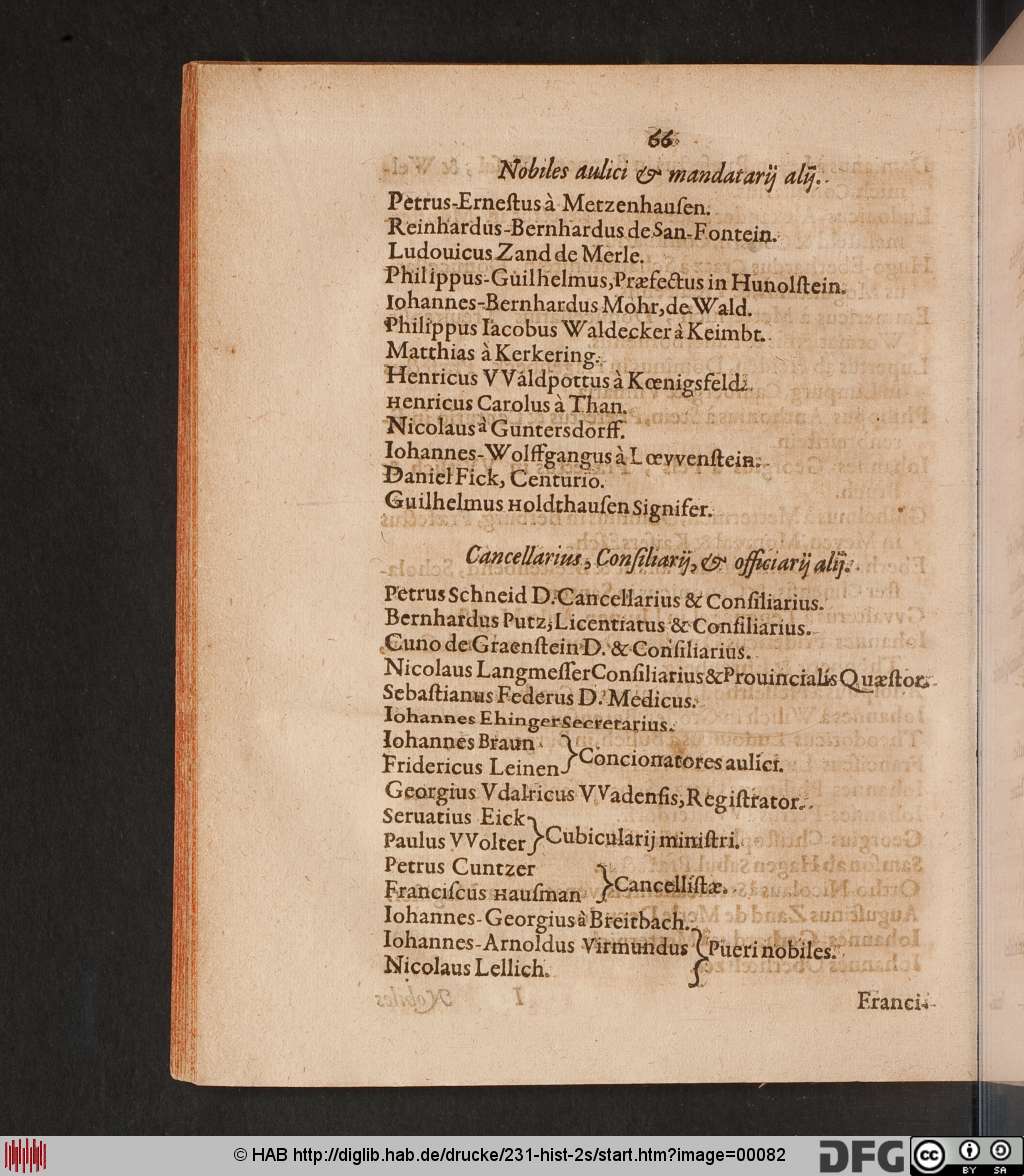 66
Nobiles aulici & mandatarij alij.
Petrus-Erneſtus à Metzenhauſen.
Reinhardus-Bernhardus de San-Fontein.
Ludouicus Zand de Merle.
Philippus-Guilhelmus, Præfectus in Hunolſtein.
Iohannes-Bernhardus Mohr, de Wald.
Philippus Iacobus Waldecker à Keimbt.
Matthias à Kerkering.
Henricus VValdpottus à Kœnigsfeld.
Henricus Carolus à Than.
Nicolaus à Guntersdorff.
Iohannes-Wolffgangus à Lœvvenſtein.
Daniel Fick, Centurio.
Guilhelmus Holdthauſen Signifer.
Cancellarius, Conſiliarij, & officiarij alij.
Petrus Schneid D. Cancellarius & Conſiliarius.
Bernhardus Putz, Licentiatus & Conſiliarius.
Cuno de Graenſtein D. & Conſiliarius.
Nicolaus Langmeſſer Conſiliarius & Prouincialis Quæſtor.
Sebaſtianus Federus D. Medicus.
Iohannes Ehinger Secretarius.
Iohannes Braun
Fridericus Leinen } Concionatores aulici.
Georgius Vdalricus VVadenſis, Regiſtrator.
Seruatius Eick
Paulus VVolter } Cubicularij miniſtri.
Petrus Cuntzer
Franciſcus Hauſman } Cancelliſtæ.
Iohannes-Georgius à Breitbach.
Iohannes-Arnoldus Virmundus } Pueri nobiles.
Nicolaus Lellich.
Franci-
© HAB http://diglib.hab.de/drucke/231-hist-2s/start.htm?image=00082
DFG
cc BY SA